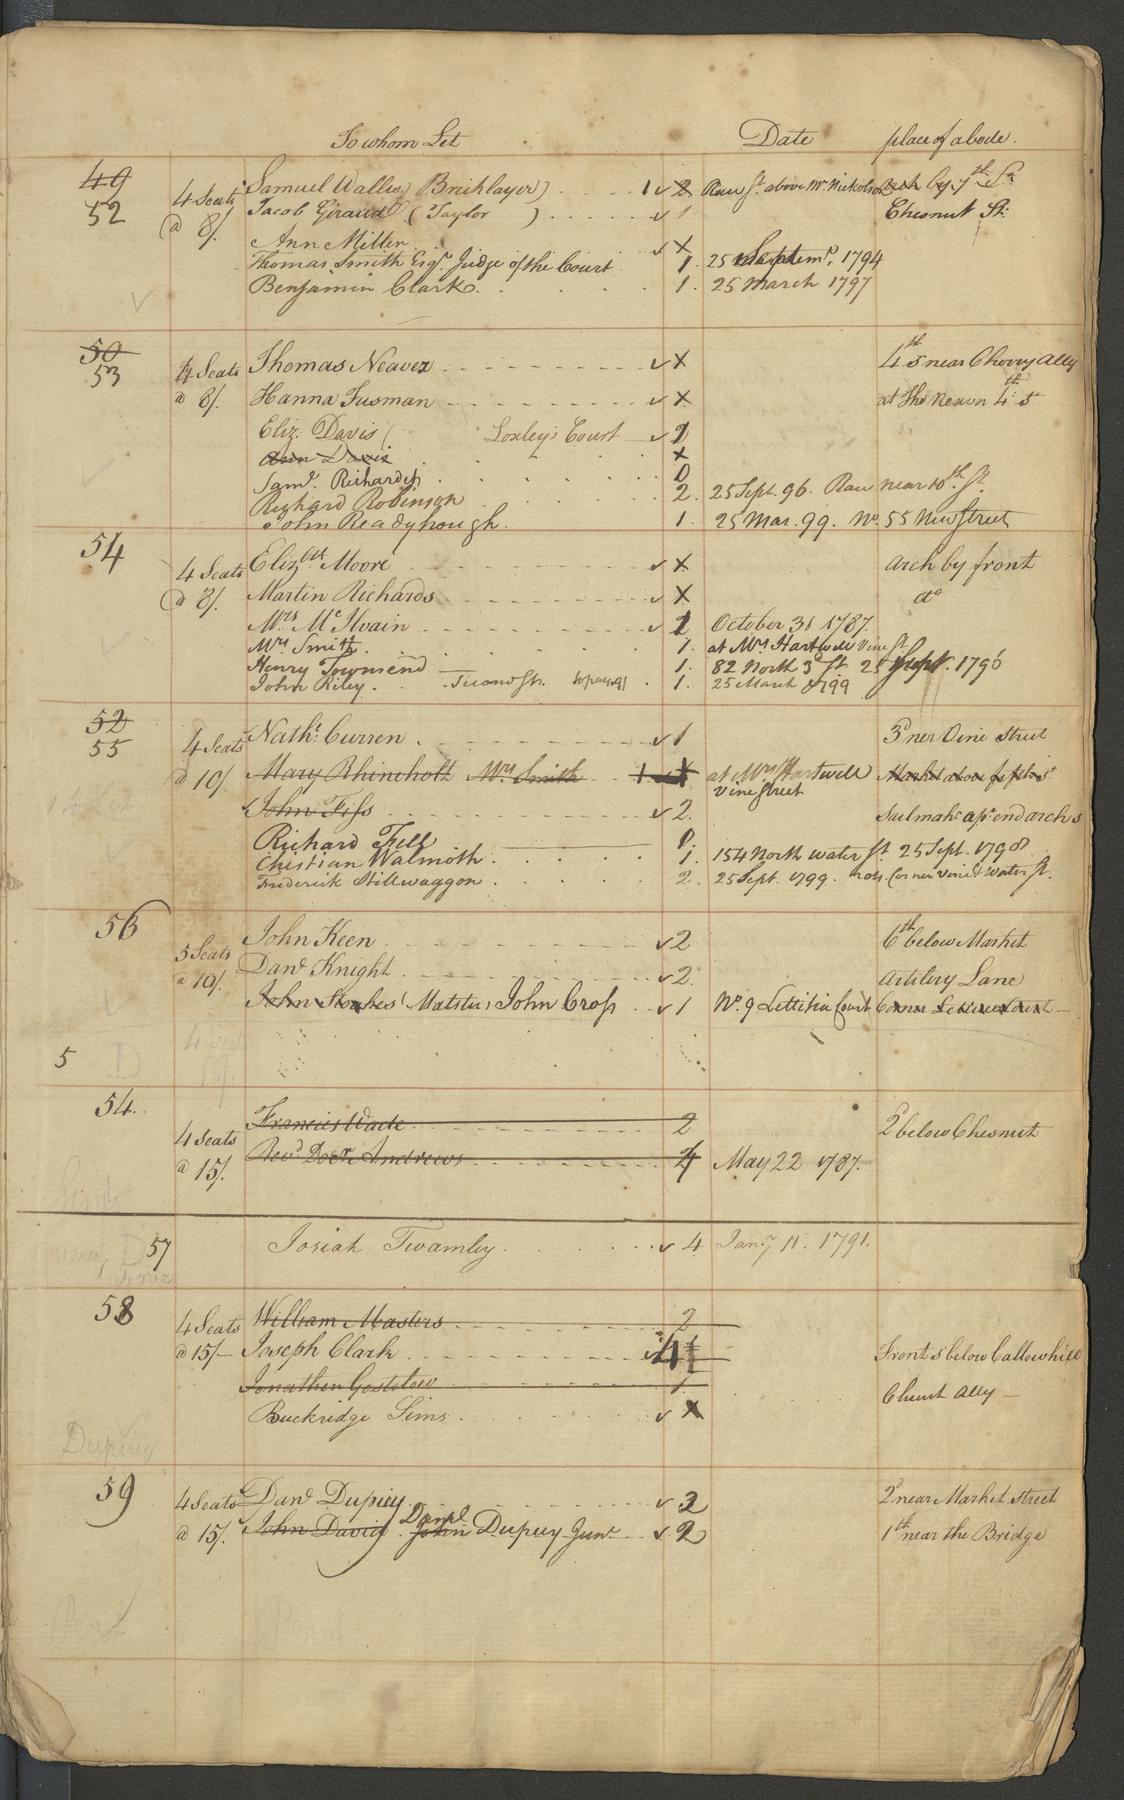 To whom Let Date place of abode.
49 4 Seats Samuel Wallis (Bricklayer) 1 v 2 Race St. above Mr. Nickolson Arch by 7th St.
52 @ 8/. Jacob Giraud (Taylor) v 1 Chesnut St:
Ann Miller v X
Thomas Smith Esqr. Judge of the Court 1. 25 Septemr. 1794
Benjamin Clark 1. 25 March 1797
50 4 Seats Thomas Neaver v X 4th S near Cherry Ally
53 @ 8/. Hanna Tusman v X at Tho Neaver 4th S
Eliz: Davis ( Loxley's Court v 1
Ann Davis X
Saml. Richards 0
Richard Robinson 2. 25 Sept. 96. Race near 10th St.
John Readyhough. 1. 25 Mar. 99. No. 55 New Street
54 4 Seats Elizbth Moore v X Arch by front
@ 8/. Martin Richards v X do
Mrs McIlvain v 1 October 31 1787.
Mrs Smith. 1. at Mrs Hartwell Vine St
Henry Townsend 1. 82 North 3d St 25 Sept. 1796
John Riley. Second St. 1. 25 March 1799
52 4 Seats Nathl: Curren v 1 3d ner Vine Street
55 @ 10/. Mary Rhineholt Mrs Smith 1 X at Mrs Hartwell Market above
Vine Street
John Fiss v 2. Sailmakr end arch s
Richard Fell 0.
Christian Walmoth 1. 154 North water St. 25 Sept. 1798
Frederick Stillwaggon 2. 25 Sept. 1799. Corner Vine & Water St.
56 John Keen v 2 6th below Market
5 Seats Danl Knight v 2. Artilery Lane
@ 10/. John Stookes (Malster) John Cross v 1 No. 9 Lettitia Court Corner Court
4 Seats
5 D
54. Francis Wade 2 2d below Chesnut
4 Seats
@ 15/. Revd Doctr Andrews 4 May 22 1787.
57 Josiah Twamley v 4 Jany 11. 1791.
58 4 Seats William Masters 2
@ 15/- Joseph Clark v 4 Front S below Callowhill
Jonathen Gostelow 1 Church Ally
Buckridge Sims v X
Dupuy
59 4 Seats Danl Dupuy v 3 2d near Market Street
@ 15/. John David John Danl Dupuy Junr v 2 1th near the Bridge